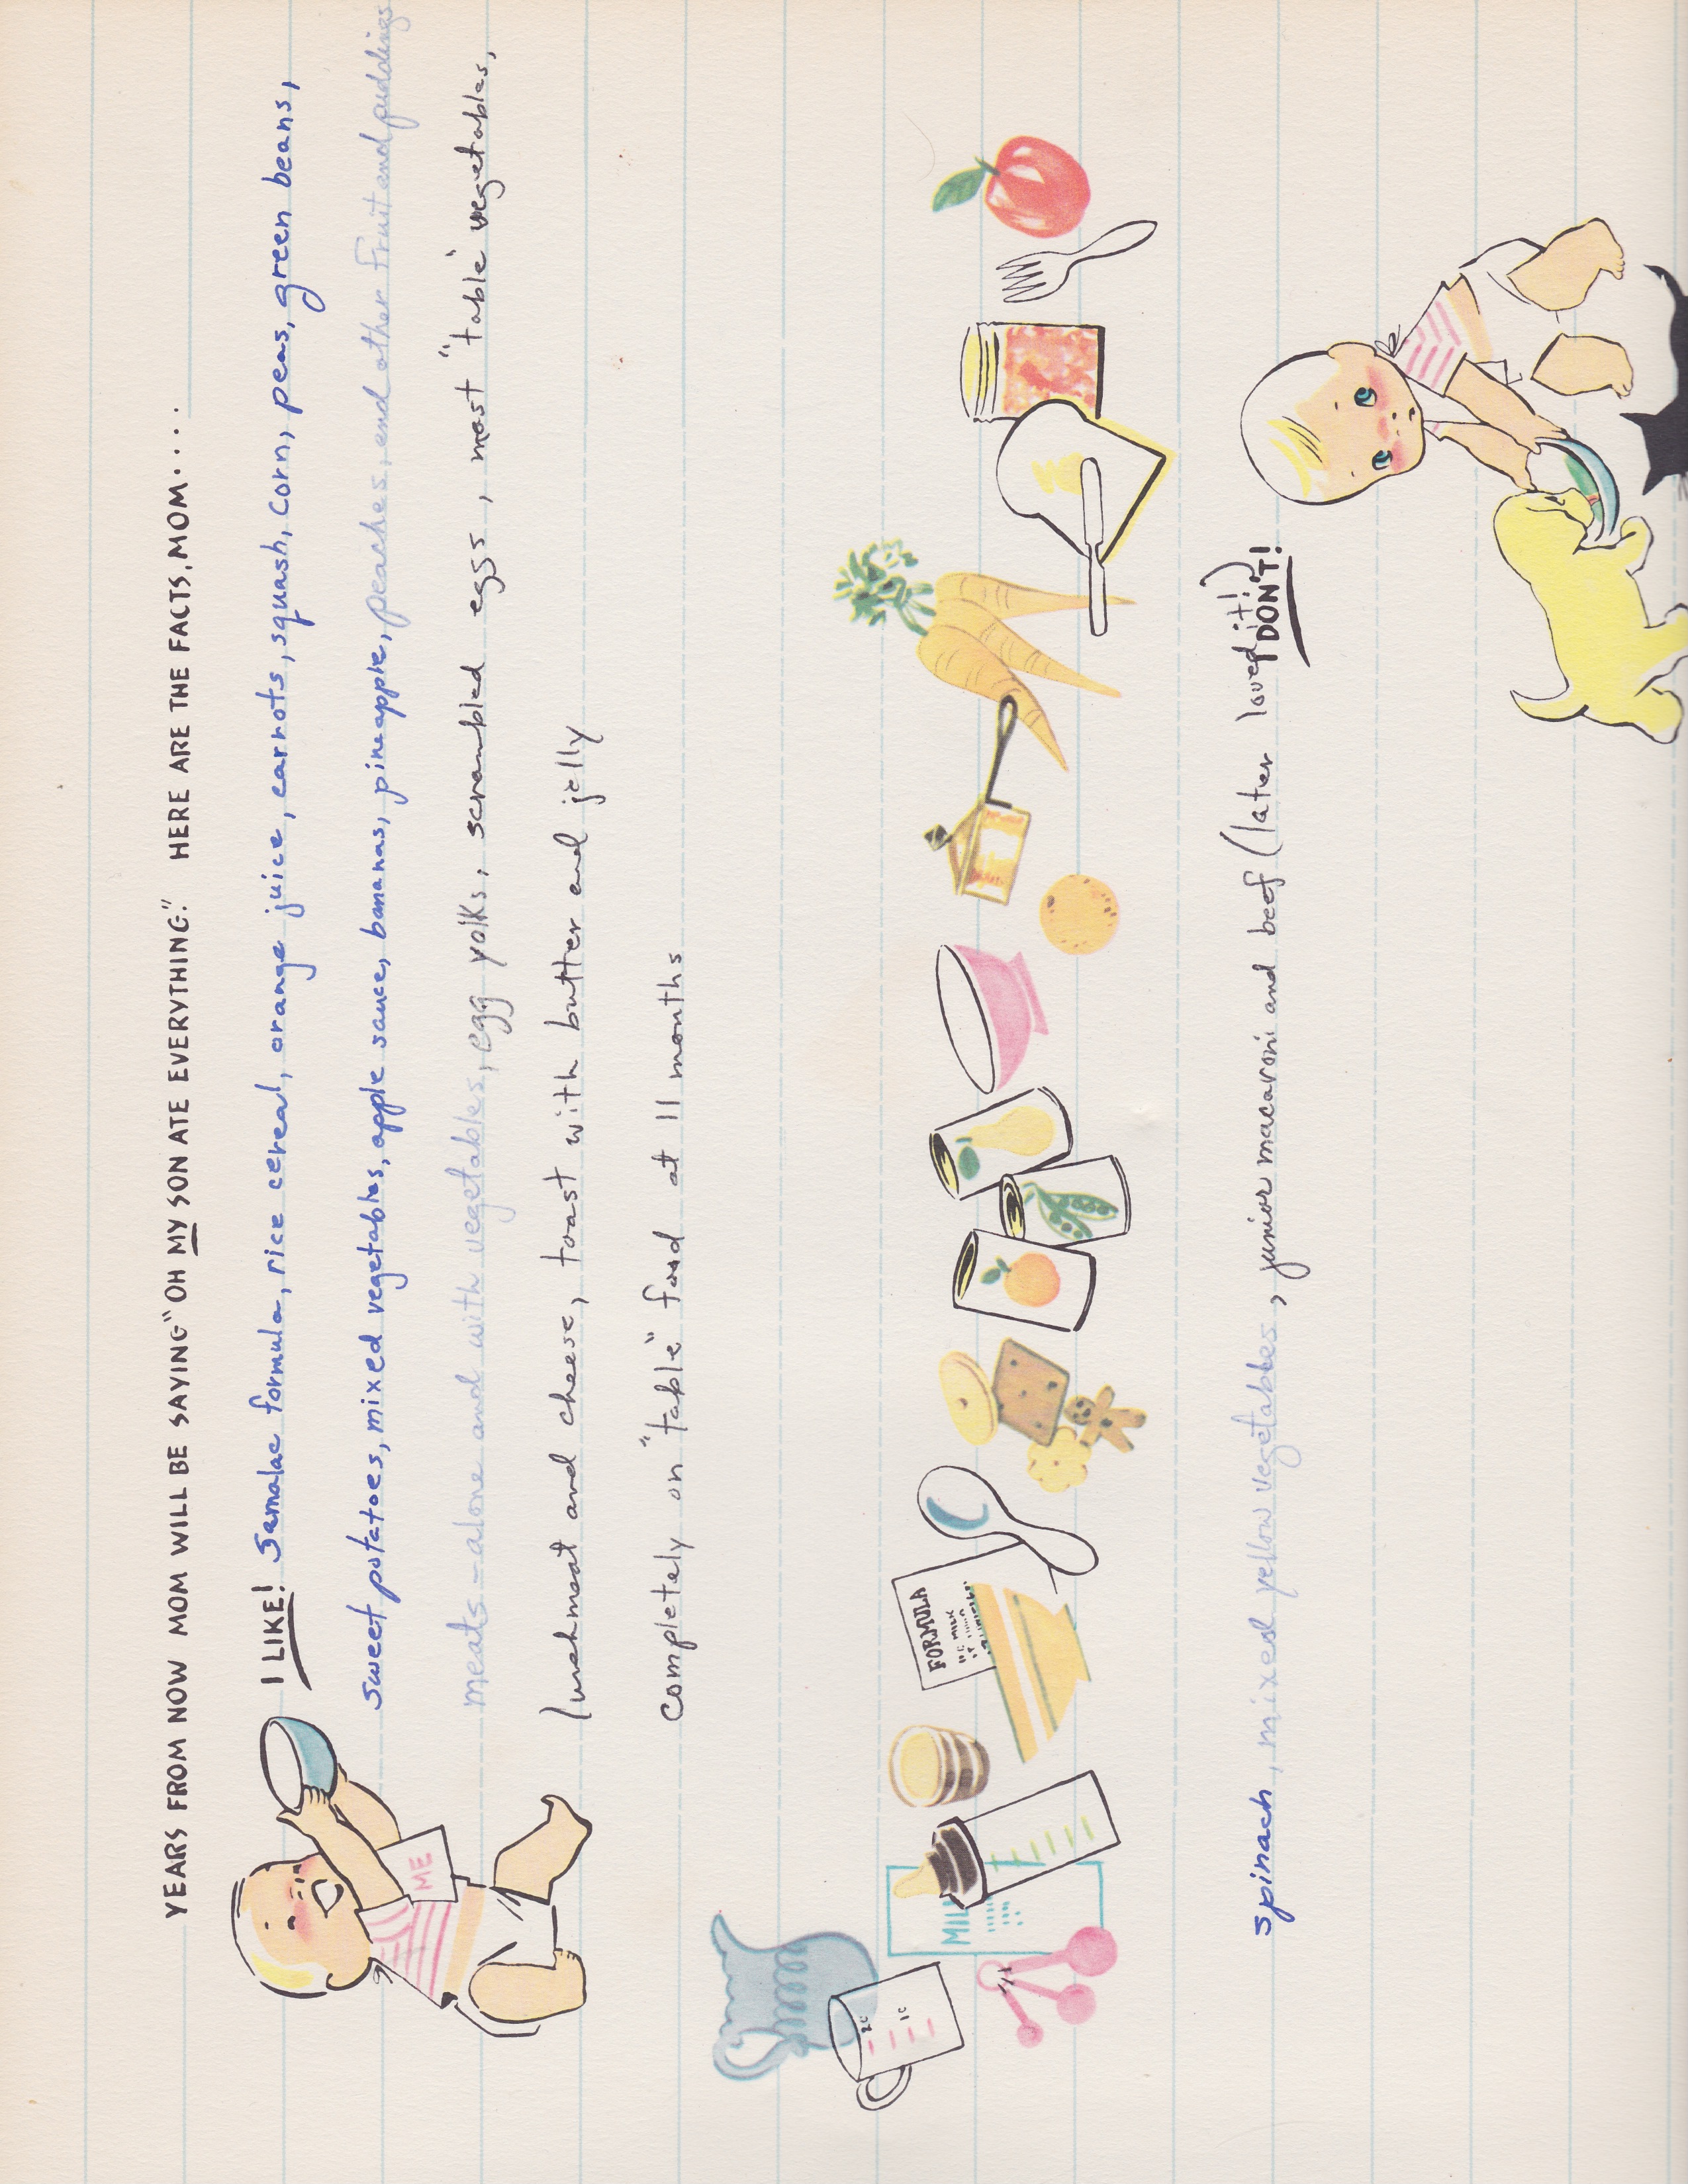 YEARS FROM NOW MOM WILL BE SAYING "OH MY SON ATE EVERYTHING." HERE ARE THE FACTS, MOM....
I LIKE! Samalac formula, rice cereal, orange juice, carrots, squash, corn, peas, green beans,
sweet potatoes, mixed vegetables, apple sauce, bananas, pineapple, peaches, and other fruit and puddings
meats - alone and with vegetables, egg yolks, scrambled eggs, most "table" vegetables,
lunchmeat and cheese, toast with butter and jelly
completely on "table" food at 11 months
ME
2C
1C
MILK
FORMULA
spinach, mixed yellow vegetables, junior macaroni and beef (later loved it!)
I DON'T!